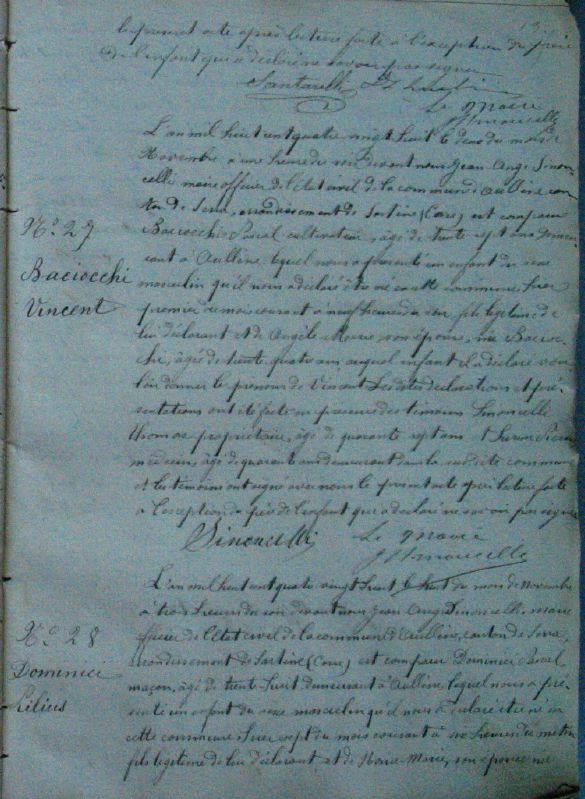 le présent acte après lecture faite à l'exception du père
de l'enfant qui a déclaré ne savoir pas signer
Santarelli
Le Maire
Simoncelli
L'an mil huit cent quatre vingt huit le deux du mois de
Novembre à une heure du soir devant nous Jean Ange Simon-
celli maire officier de l'état civil de la commune d'Aullène, can-
ton de Serra, arrondissement de Sartène (Corse) est comparu
No 27
Baciocchi Pascal cultivateur, âgé de trente sept ans demeu-
rant à Aullène, lequel nous a présenté un enfant du sexe
Baciocchi
masculin qu'il nous a déclaré être né en cette commune, hier
Vincent
premier du mois courant à neuf heures du soir, fils légitime de
lui déclarant et de Angèle Marie son épouse, née Bacioc-
chi, âgée de trente quatre ans, auquel enfant il a déclaré vou-
loir donner le prénom de Vincent. Les dites déclarations et pré-
sentations ont été faites en présence des témoins Simoncelli
Thomas propriétaire, âgé de quarante sept ans et
médecin, âgé de quarante ans demeurant dans la susdite commune
et les témoins ont signé avec nous le présent acte après lecture faite
à l'exception du père de l'enfant qui a déclaré ne savoir pas signer
Simoncelli Le Maire
Simoncelli
L'an mil huit cent quatre vingt huit le huit du mois de Novembre
à trois heures du soir devant nous Jean Ange Simoncelli, maire
No 28
officier de l'état civil de la commune d'Aullène, canton de Serra,
arrondissement de Sartène (Corse) est comparu Dominici
Dominici
maçon, âgé de trente huit demeurant à Aullène lequel nous a pré-
Lilius
senté un enfant du sexe masculin qu'il nous a déclaré être né en
cette commune, hier sept du mois courant à heures du matin
fils légitime de lui déclarant et de Marie, son épouse née